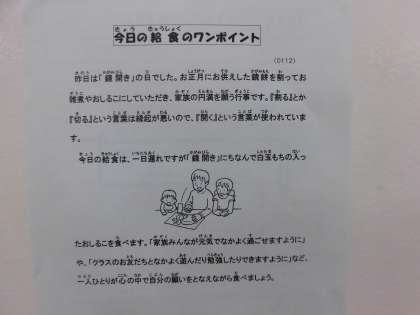 今日の給食のワンポイント
(0112)
昨日は「鏡開き」の日でした。お正月にお供えした鏡餅を割ってお
雑煮やおしるこにしていただき、家族の円満を願う行事です。『割る』とか
『切る』という言葉は縁起が悪いので、『開く』という言葉が使われていま
す。
今日の給食は、一日遅れですが「鏡開き」にちなんで白玉もちの入っ
たおしるこを食べます。「家族みんなが元気でなかよく過ごせますように」
や、「クラスのお友だちとなかよく遊んだり勉強したりできますように」など、
一人ひとりが心の中で自分の願いをとなえながら食べましょう。